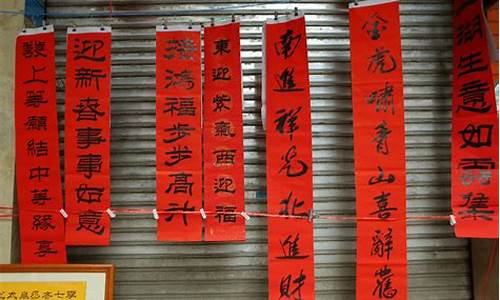 上等願結中等緣享
迎新春事事如意
接鴻福步步高升
東迎紫氣西迎福
南進祥光北進財
金虎嘯青山喜辭舊
湖生意如雲集